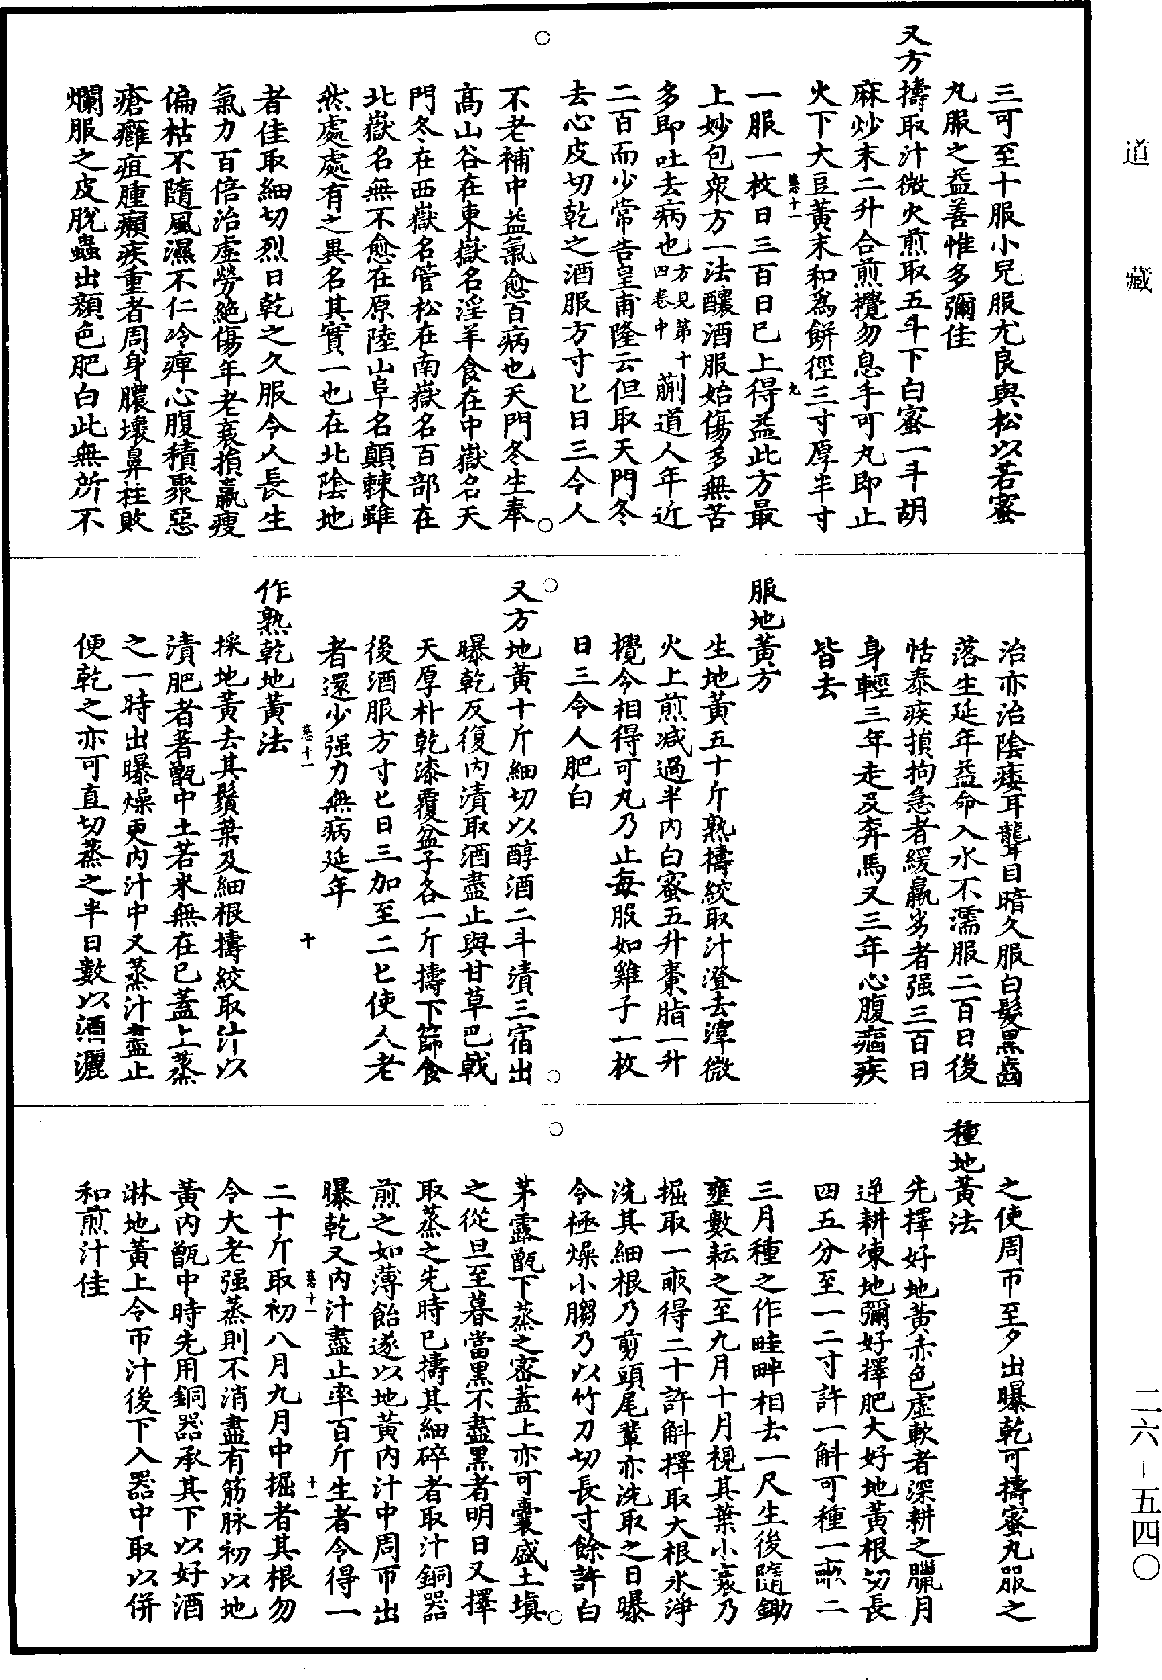 道藏
三可至十服小兒服尤良與松以若蜜
丸服之益善惟多彌佳
又方擣取汁微火煎取五斗下白蜜一斗胡
麻炒末二升合煎攪勿息手可丸即止
火下大豆黃末和爲餅徑三寸厚半寸
卷十一　九
一服一枚日三百日已上得益此方最
上妙包衆方一法釀酒服始傷多無苦
多即吐去病也方見第十四卷中蒯道人年近
二百而少常告皇甫隆云但取天門冬
去心皮切乾之酒服方寸匕日三令人
不老補中益氣愈百病也天門冬生奉
高山谷在東嶽名淫羊食在中嶽名天
門冬在西嶽名管松在南嶽名百部在
北嶽名無不愈在原陸山阜名顛棘雖
然處處有之異名其實一也在北陰地
者佳取細切烈日乾之久服令人長生
氣力百倍治虛勞絶傷年老衰損羸瘦
偏枯不隨風濕不仁冷痺心腹積聚惡
瘡癰疽腫癩疾重者周身膿壞鼻柱敗
爛服之皮脫蟲出顏色肥白此無所不
治亦治陰痿耳聾目暗久服白髮黑齒
落生延年益命入水不濡服二百日後
恬泰疾損拘急者緩羸劣者强三百日
身輕三年走及奔馬又三年心腹痼疾
皆去
服地黃方
生地黃五十斤熟擣絞取汁澄去滓微
火上煎减過半內白蜜五升棗脂一升
攪令相得可丸乃止每服如雞子一枚
日三令人肥白
又方地黃十斤細切以醇酒二斗漬三宿出
曝乾反復內漬取酒盡止與甘草巴戟
天厚朴乾漆覆盆子各一斤擣下篩食
後酒服方寸匕日三加至二匕使人老
者還少强力無病延年
卷十一　十
作熟乾地黃法
採地黃去其鬚葉及細根擣絞取汁以
漬肥者著甑中土若米無在已蓋上蒸
之一時出曝燥更內汁中又蒸汁盡止
便乾之亦可直切蒸之半日數以酒灑
之使周帀至夕出曝乾可擣蜜丸服之
種地黃法
先擇好地黃赤色虛軟者深耕之臘月
逆耕凍地彌好擇肥大好地黃根切長
四五分至一二寸許一斛可種一畞二
三月種之作畦畔相去一尺生後隨鋤
壅數耘之至九月十月視其葉小衰乃
掘取一畞得二十許斛擇取大根水淨
洗其細根乃剪頭尾輩亦洗取之日曝
令極燥小䐢乃以竹刀切長寸餘許白
茅露甑下蒸之密蓋上亦可囊盛土填
之從旦至暮當黑不盡黑者明日又擇
取蒸之先時已擣其細碎者取汁銅器
煎之如薄飴遂以地黃內汁中周帀出
曝乾又內汁盡止率百斤生者令得一
卷十一　十一
二十斤取初八月九月中掘者其根勿
令大老强蒸則不消盡有筋脉初以地
黃內甑中時先用銅器承其下以好酒
淋地黃上令帀汁後下入器中取以併
和煎汁佳
二六－五四〇